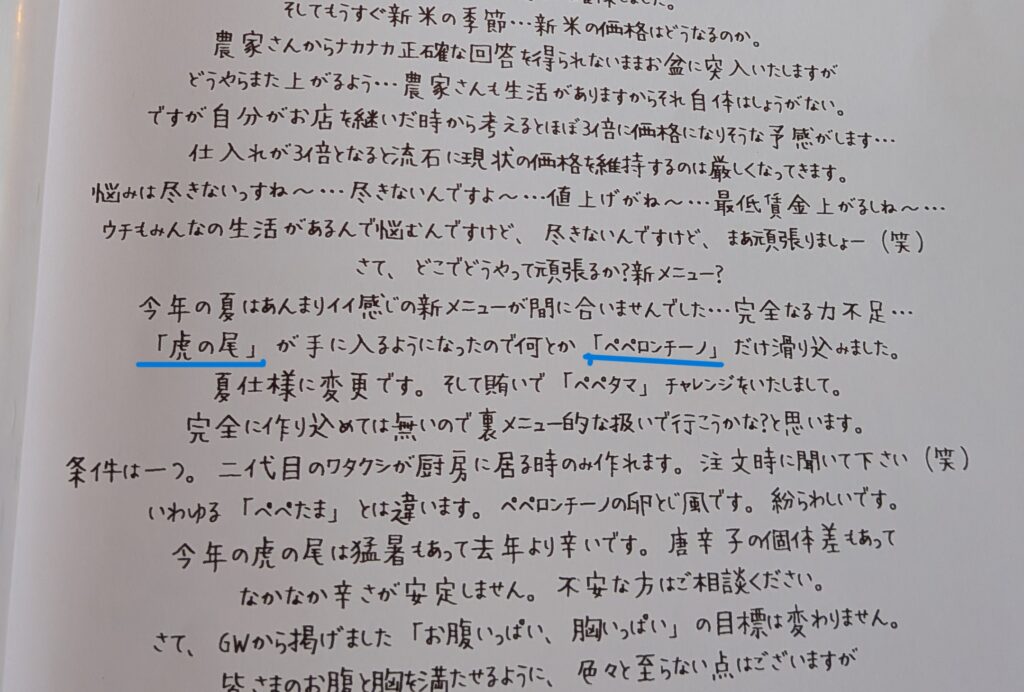 そしてもうすぐ新米の季節…新米の価格はどうなるのか。
農家さんからナカナカ正確な回答を得られないままお盆に突入いたしますが
どうやらまた上がるよう…農家さんも生活がありますからそれ自体はしょうがない。
ですが自分がお店を継いだ時から考えるとほぼ3倍に価格になりそうな予感がします…
仕入れが3倍となると流石に現状の価格を維持するのは厳しくなってきます。
悩みは尽きないっすね〜…尽きないんですよ〜…値上げがね〜…最低賃金上がるしね〜…
ウチもみんなの生活があるんで悩むんですけど、尽きないんですけど、まあ頑張りましょー（笑）
さて、どこでどうやって頑張るか?新メニュー?
今年の夏はあんまりイイ感じの新メニューが間に合いませんでした…完全なる力不足…
「虎の尾」が手に入るようになったので何とか「ペペロンチーノ」だけ滑り込みました。
夏仕様に変更です。そして賄いで「ペペタマ」チャレンジをいたしまして。
完全に作り込めては無いので裏メニュー的な扱いで行こうかな?と思います。
条件は一つ。二代目のワタクシが厨房に居る時のみ作れます。注文時に聞いて下さい（笑）
いわゆる「ペペたま」とは違います。ペペロンチーノの卵とじ風です。紛らわしいです。
今年の虎の尾は猛暑もあって去年より辛いです。唐辛子の個体差もあって
なかなか辛さが安定しません。不安な方はご相談ください。
さて、GWから掲げました「お腹いっぱい、胸いっぱい」の目標は変わりません。
皆さまのお腹と胸を満たせるように、色々と至らない点はございますが